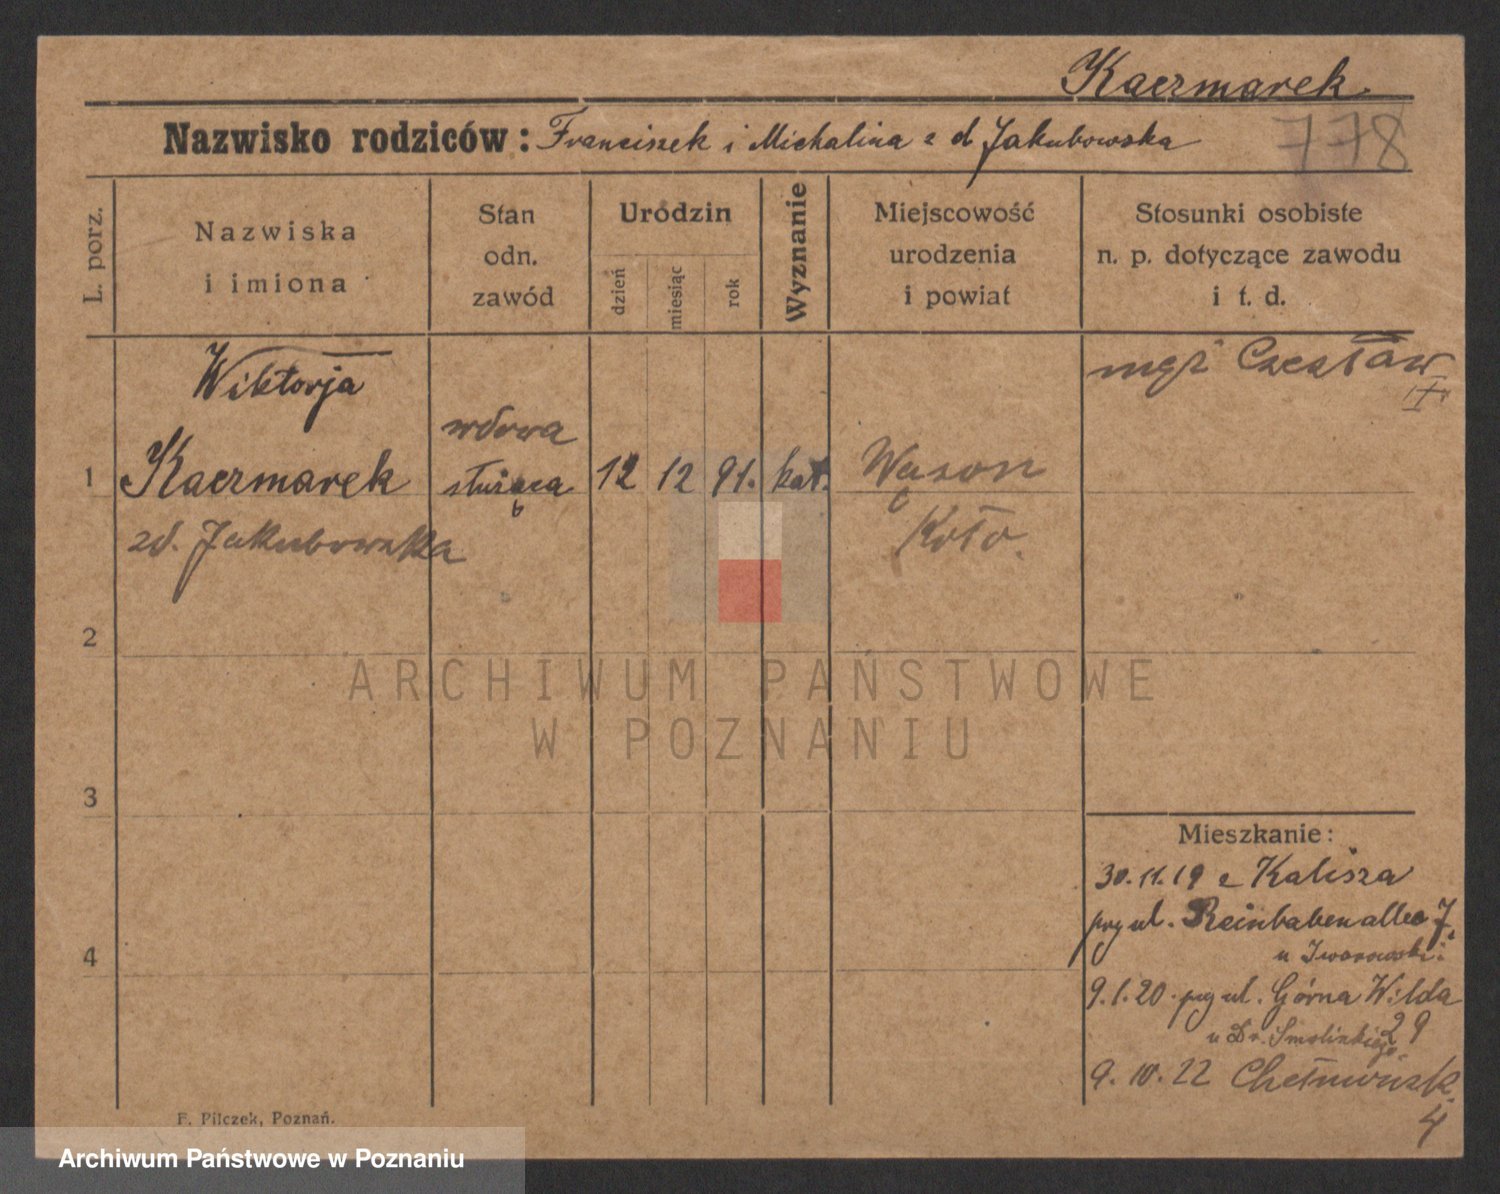 Kaczmarek.
Nazwisko rodziców: Franciszek i Michalina z d Jakubowska
778
L. porz.
Nazwiska
i imiona
Stan
odn.
zawód
Urodzin
dzień
miesiąc
rok
Wyznanie
Miejscowość
urodzenia
i powiat
Stosunki osobiste
n. p. dotyczące zawodu
i t. d.
Wiktorja
mąż Czesław
wdowa
1
Kaczmarek
służąca
12
12
91.
kat.
zd. Jakubowska
Koło.
2
ARCHIWUM PAŃSTWOWE
W POZNANIU
3
Mieszkanie:
30.11.19 z Kalisza
przy ul. Reinbabenallee 7.
4
9.1.20. przy ul. Górna Wilda
29
u Dr. Smolińskiego
9.10.22
4
F. Pilczek, Poznań.
Archiwum Państwowe w Poznaniu